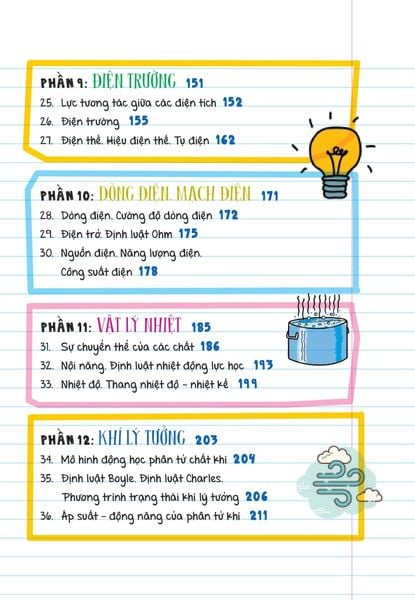 PHẦN 9: ĐIỆN TRƯỜNG 151
25. Lực tương tác giữa các điện tích 152
26. Điện trường 155
27. Điện thế. Hiệu điện thế. Tụ điện 162
PHẦN 10: DÒNG ĐIỆN. MẠCH ĐIỆN 171
28. Dòng điện. Cường độ dòng điện 172
29. Điện trở. Định luật Ohm 175
30. Nguồn điện. Năng lượng điện.
Công suất điện 178
PHẦN 11: VẬT LÝ NHIỆT 185
31. Sự chuyển thể của các chất 186
32. Nội năng. Định luật nhiệt động lực học 193
33. Nhiệt độ. Thang nhiệt độ - nhiệt kế 199
PHẦN 12: KHÍ LÝ TƯỞNG 203
34. Mô hình động học phân tử chất khí 204
35. Định luật Boyle. Định luật Charles.
Phương trình trạng thái khí lý tưởng 206
36. Áp suất - động năng của phân tử khí 211